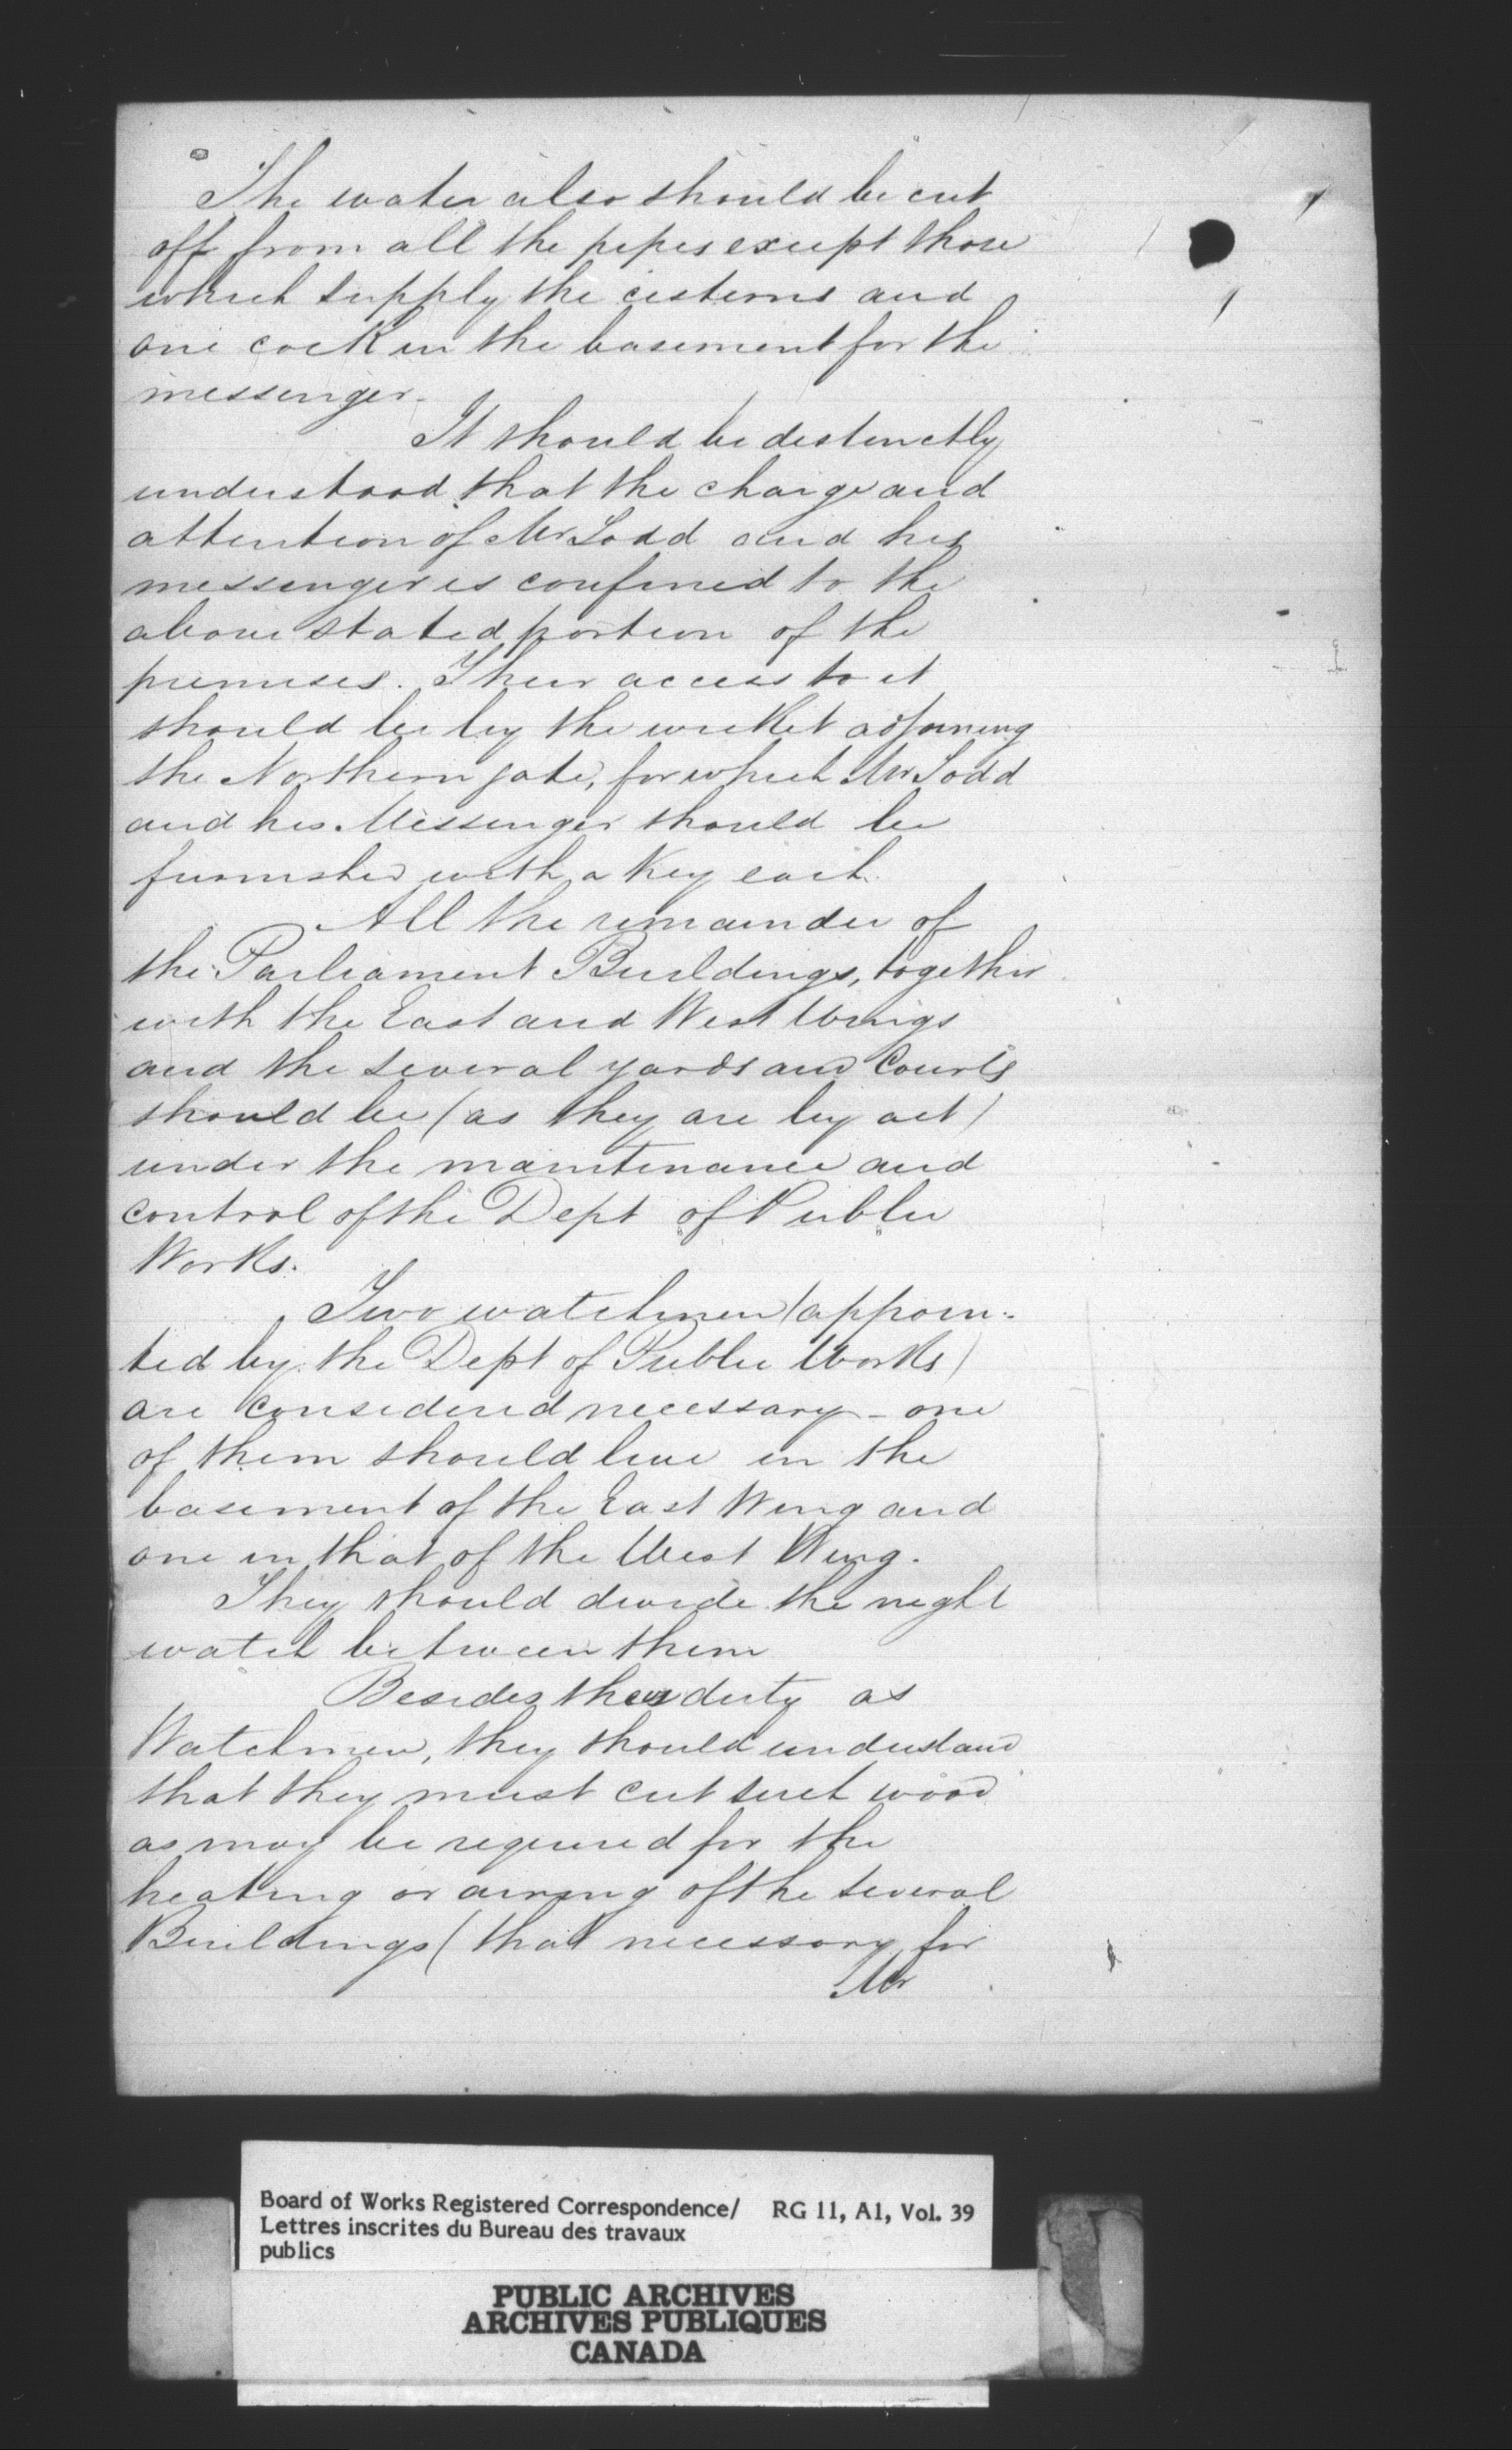 The water also should be cut
off from all the pipes except those
which supply the cisterns and
one cock in the basement for the
messenger.
It should be distinctly
understood that the charge and
attention of Mr Todd and his
messenger is confined to the
above stated portion of the
premises. Their access to it
should be by the wicket adjoining
the Northern gate, for which Mr Todd
and his Messenger should be
furnished with a Key each.
All the remainder of
the Parliament Buildings, together
with the East and West Wings
and the several yards and Courts
should be (as they are by act)
under the maintenance and
control of the Dept of Public
Works.
Two watchmen (appoin-
ted by the Dept of Public Works)
are considered necessary - one
of them should live in the
basement of the East Wing and
one in that of the West Wing.
They should divide the night
watch between them
Besides their duty as
Watchmen, they should understand
that they must cut such wood
as may be required for the
heating or airing of the several
Buildings (that necessary for
Mr
Board of Works Registered Correspondence/ RG 11, A1, Vol. 39
Lettres inscrites du Bureau des travaux
publics
PUBLIC ARCHIVES
ARCHIVES PUBLIQUES
CANADA